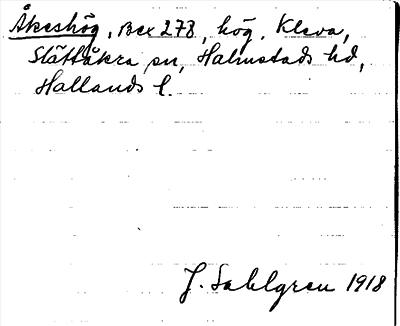 Åkeshög, Bex 278, hög, Kleva,
Slättåkra sn, Halmstads hd,
Hallands l.
J. Sahlgren 1918